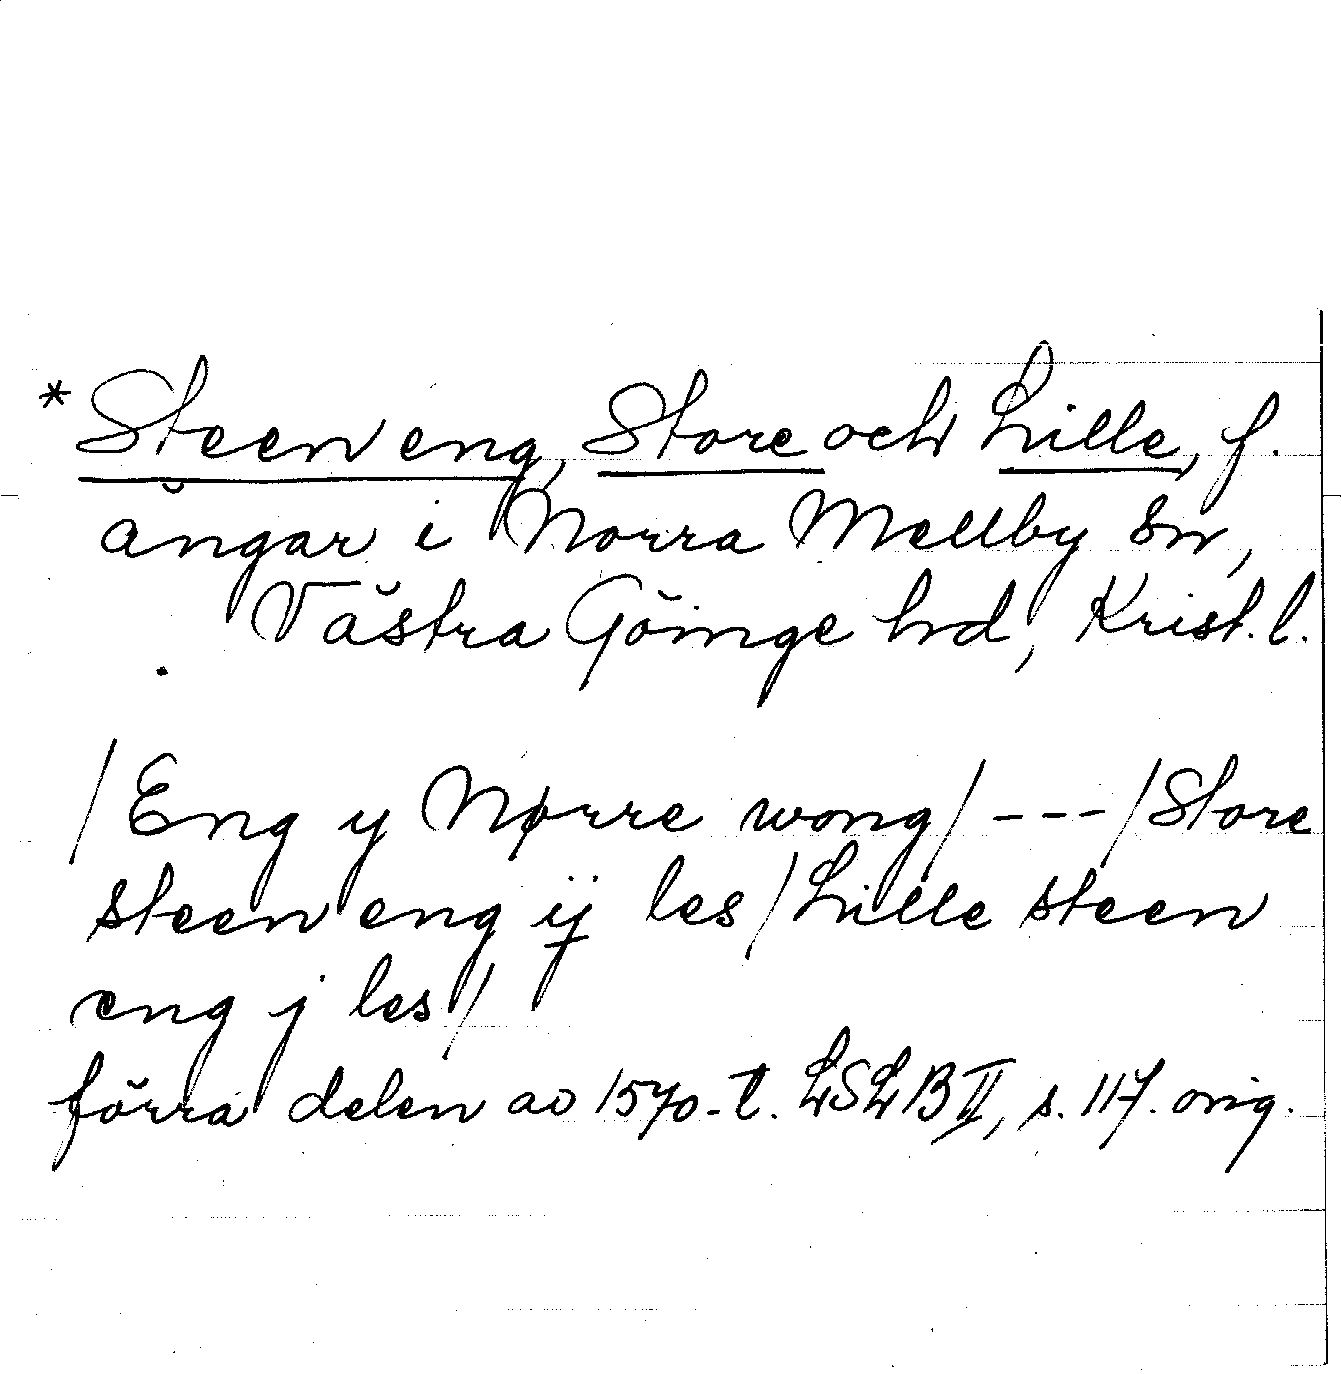 * Steen eng, Store och Lille, f.
ängar i Norra Mellby sn,
Västra Göinge hd, Krist. l.
/Eng y Nørre wong/---/Store
steen eng ij les/Lille steen
eng j les/
förra delen av 1570-t. LSLB II, s. 117. orig.